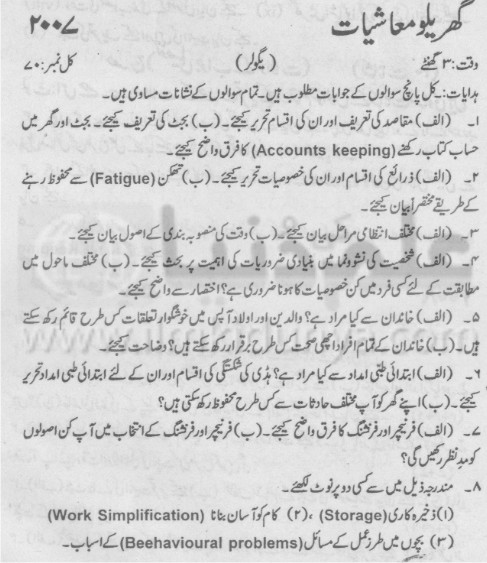 گھریلو معاشیات ۲۰۰۷
وقت: ۳ گھنٹے (ریگولر) کل نمبر: ۷۰
ہدایات: کل پانچ سوالوں کے جوابات مطلوب ہیں۔ تمام سوالوں کے نشانات مساوی ہیں۔
۱۔ (الف) مقاصد کی تعریف اور ان کی اقسام تحریر کیجئے۔ (ب) بجٹ کی تعریف کیجئے۔ بجٹ اور گھر میں
حساب کتاب رکھنے (Accounts keeping) کا فرق واضح کیجئے۔
۲۔ (الف) ذرائع کی اقسام اور ان کی خصوصیات تحریر کیجئے۔ (ب) تھکن (Fatigue) سے محفوظ رہنے
کے طریقے مختصراً بیان کیجئے۔
۳۔ (الف) مختلف انتظامی مراحل بیان کیجئے۔ (ب) وقت کی منصوبہ بندی کے اصول بیان کیجئے۔
۴۔ (الف) شخصیت کی نشوونما میں بنیادی ضروریات کی اہمیت پر بحث کیجئے۔ (ب) مختلف ماحول میں
مطابقت کے لئے کسی فرد میں کن خصوصیات کا ہونا ضروری ہے؟ اختصار سے واضح کیجئے۔
۵۔ (الف) خاندان سے کیا مراد ہے؟ والدین اور اولاد آپس میں خوشگوار تعلقات کس طرح قائم رکھ سکتے
ہیں۔ (ب) خاندان کے تمام افراد اچھی صحت کس طرح برقرار رکھ سکتے ہیں؟ وضاحت کیجئے۔
۶۔ (الف) ابتدائی طبی امداد سے کیا مراد ہے؟ ہڈی کی شکستگی کی اقسام اور ان کے لئے ابتدائی طبی امداد تحریر
کیجئے۔ (ب) اپنے گھر کو آپ مختلف حادثات سے کس طرح محفوظ رکھ سکتی ہیں؟
۷۔ (الف) فرنیچر اور فرنشنگ کا فرق واضح کیجئے۔ (ب) فرنیچر اور فرنشنگ کے انتخاب میں آپ کن اصولوں
کو مدِ نظر رکھیں گی؟
۸۔ مندرجہ ذیل میں سے کسی دو پر نوٹ لکھئے۔
(۱) ذخیرہ کاری (Storage)، (۲) کام کو آسان بنانا (Work Simplification)
(۳) بچوں میں طرزِ عمل کے مسائل (Beehavioural problems) کے اسباب۔